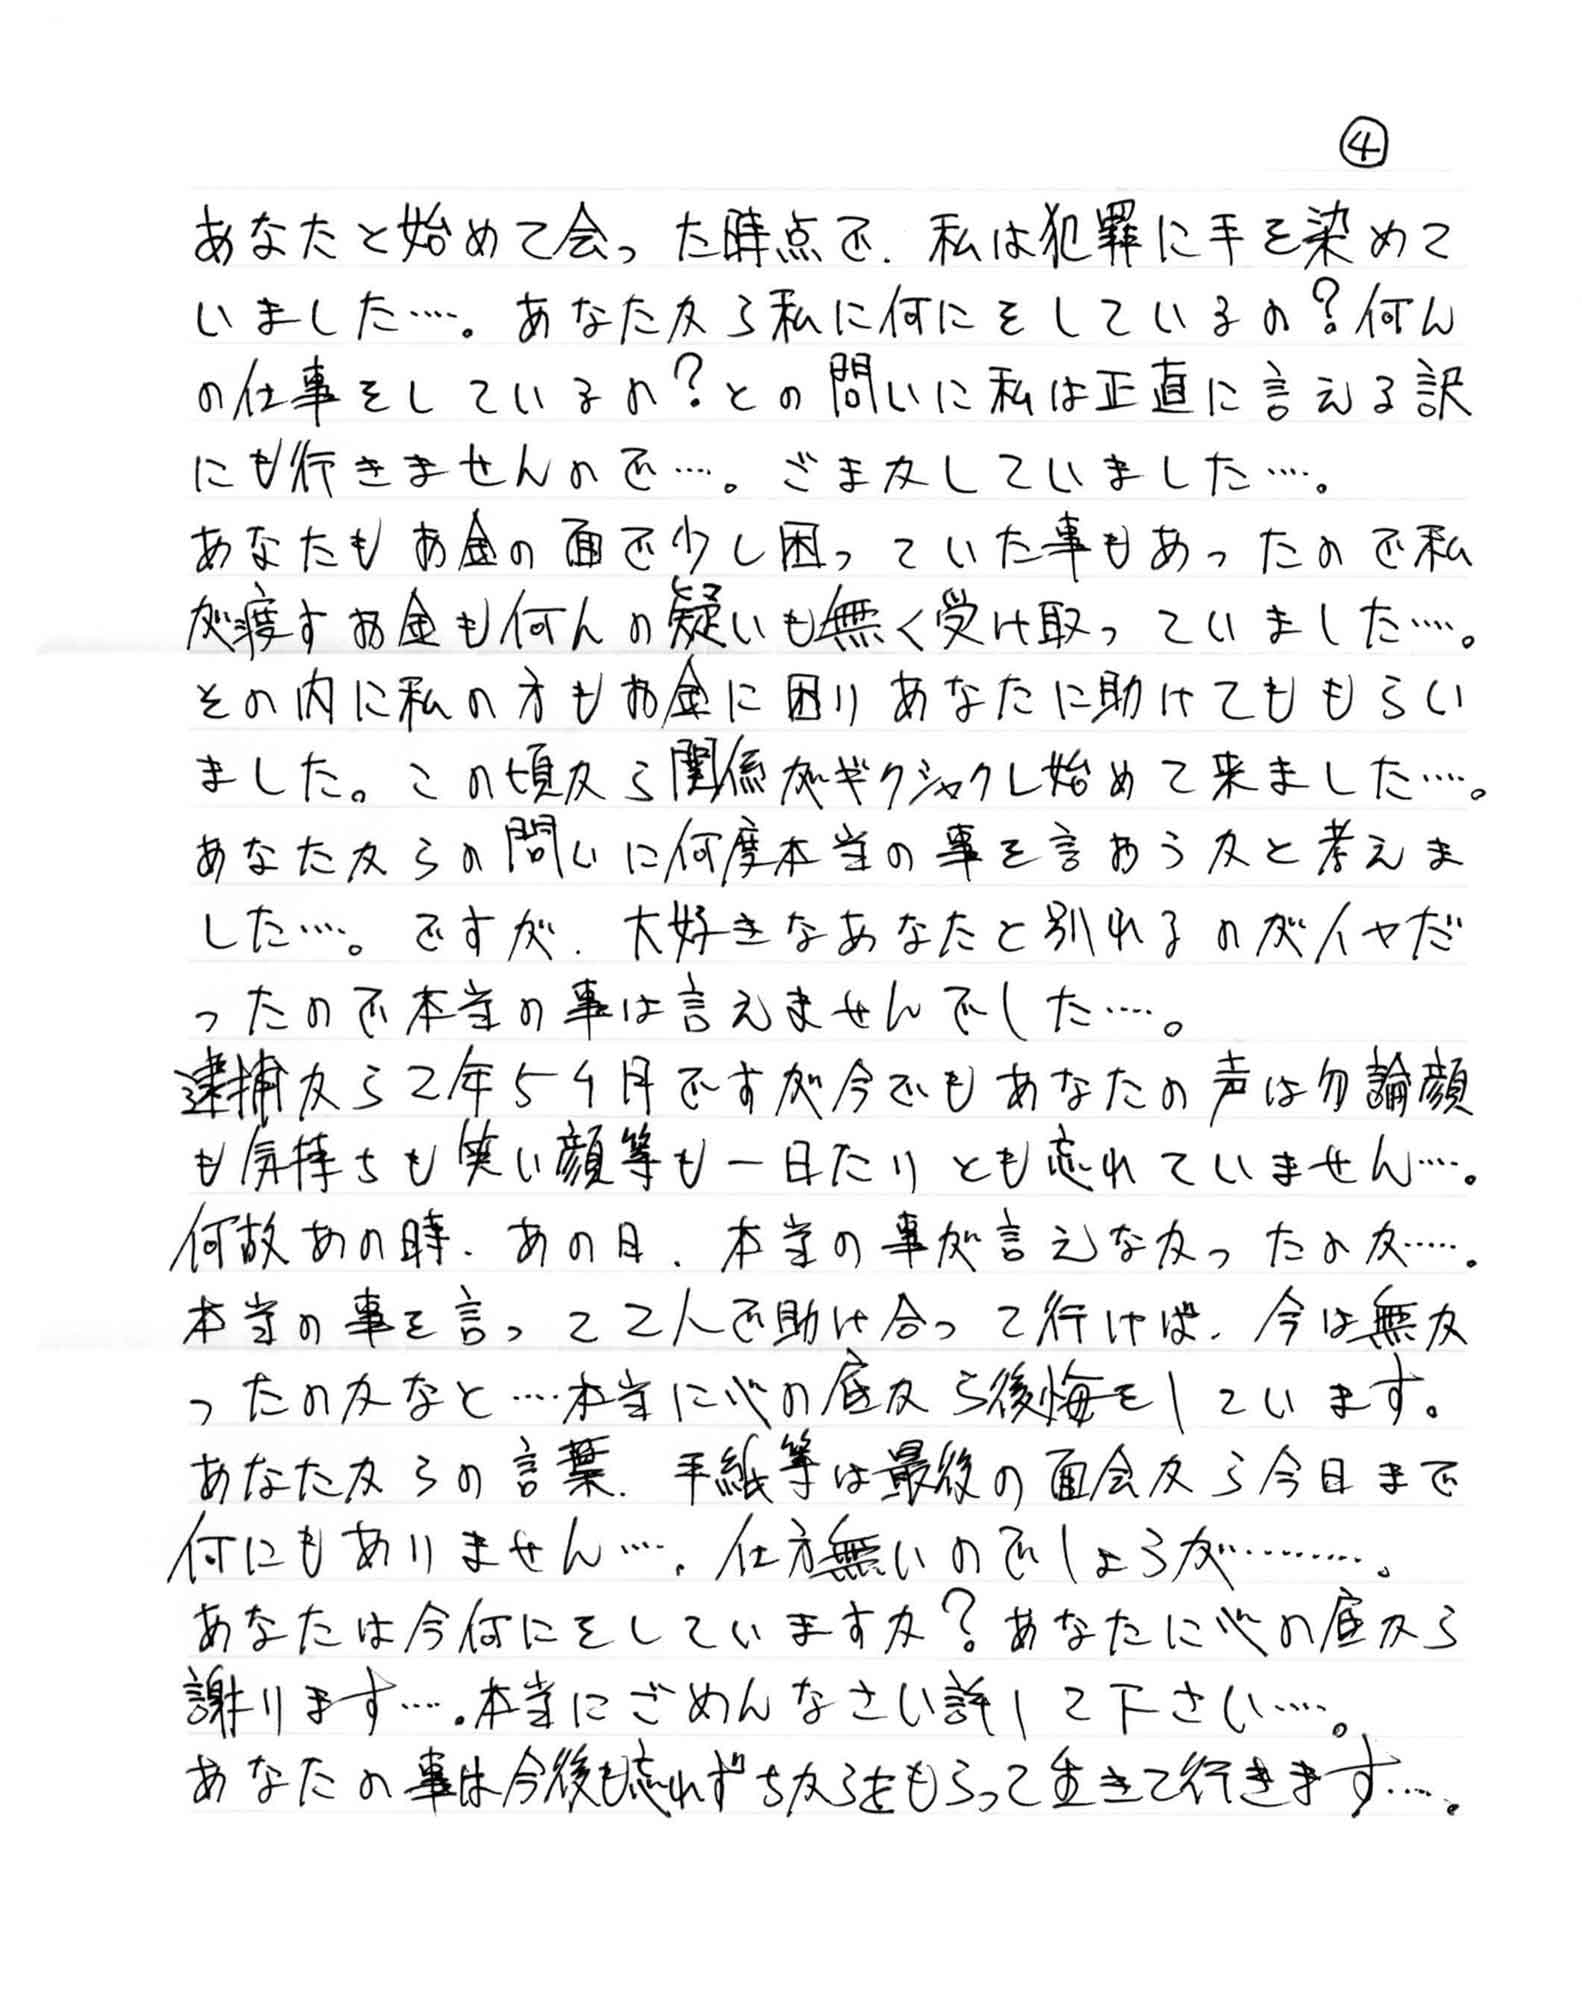 ④
あなたと始めて会った時点で、私は犯罪に手を染めて
いました…。あなたから私に何にをしているの?何ん
の仕事をしているの?との問いに私は正直に言える訳
にも行きませんので…。ごまかしていました…。
あなたもお金の面で少し困っていた事もあったので私
が渡すお金も何んの疑いも無く受け取っていました…。
その内に私の方もお金に困りあなたに助けてももらい
ました。この頃から関係がギクシャクし始めて来ました…。
あなたからの問いに何度本当の事を言おうかと考えま
した…。ですが、大好きなあなたと別れるのがイヤだ
ったので本当の事は言えませんでした…。
逮捕から2年5ヶ月ですが今でもあなたの声は勿論顔
も気持ちも笑い顔等も一日たりとも忘れていません…。
何故あの時、あの日、本当の事が言えなかったのか……。
本当の事を言って2人で助け合って行けば、今は無か
ったのかなと…本当に心の底から後悔をしています。
あなたからの言葉、手紙等は最後の面会から今日まで
何にもありません…、仕方無いのでしょうが………。
あなたは今何にをしていますか?あなたに心の底から
謝ります…。本当にごめんなさい許して下さい…。
あなたの事は今後も忘れずちからをもらって生きて行きます…。